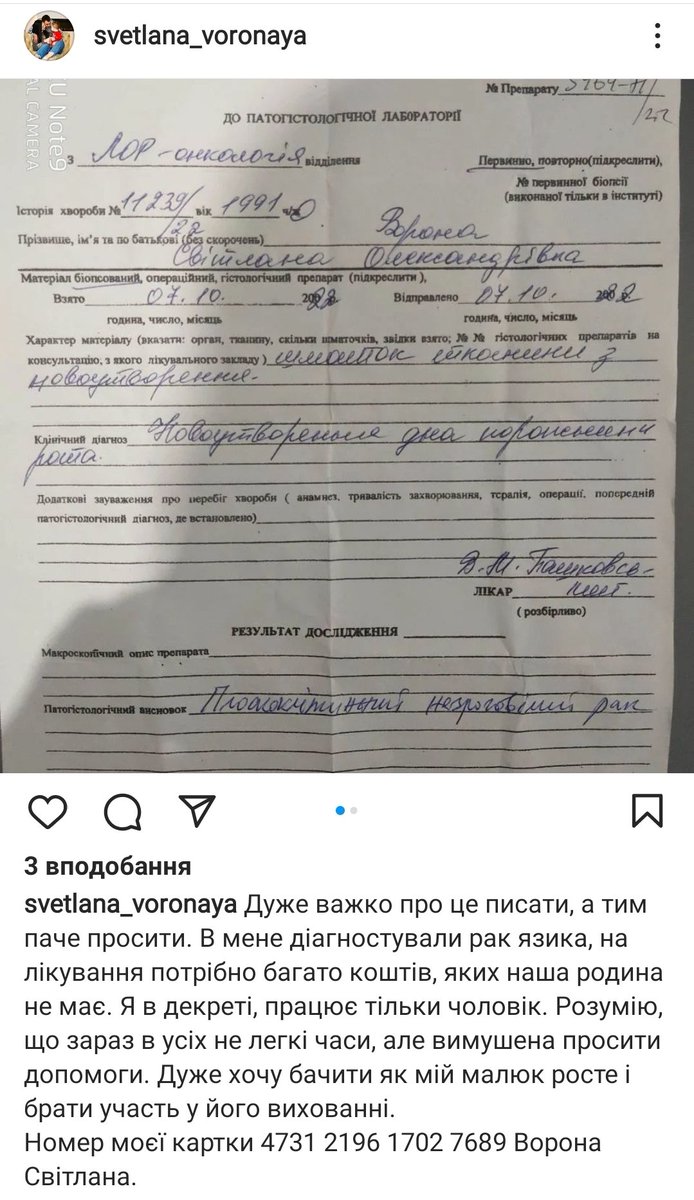 svetlana_voronaya
U Note9
AL CAMERA
№ Препарату
ДО ПАТОГІСТОЛОГІЧНОЇ ЛАБОРАТОРІЇ
З ЛОР-онкологія відділення
Первинно, повторно(підкреслити),
№ первинної біопсії
(виконаної тільки в інституті)
Історія хвороби № 11239/22 вік 1991 ч/ж
Прізвище, ім'я та по батькові (без скорочень) Ворона
Світлана Олександрівна
Матеріал біопсований, операційний, гістологічний препарат (підкреслити),
Взято 07.10. 2022 Відправлено 07.10. 2022
година, число, місяць година, число, місяць
Характер матеріалу (вказати: орган, тканину, скільки шматочків, звідки взято; № № гістологічних препаратів на
консультацію, з якого лікувального закладу) шматок тканини з
новоутворення.
Клінічний діагноз Новоутворення дна порожнини
рота.
Додаткові зауваження про перебіг хвороби ( анамнез, тривалість захворювання, терапія, операції, попередній
патогістологічний діагноз, де встановлено)
ЛІКАР
( розбірливо)
РЕЗУЛЬТАТ ДОСЛІДЖЕННЯ
Макроскопічний опис препарата
Патогістологічний висновок Плоскоклітинний незроговілий рак
3 вподобання
svetlana_voronaya Дуже важко про це писати, а тим
паче просити. В мене діагностували рак язика, на
лікування потрібно багато коштів, яких наша родина
не має. Я в декреті, працює тільки чоловік. Розумію,
що зараз в усіх не легкі часи, але вимушена просити
допомоги. Дуже хочу бачити як мій малюк росте і
брати участь у його вихованні.
Номер моєї картки 4731 2196 1702 7689 Ворона
Світлана.